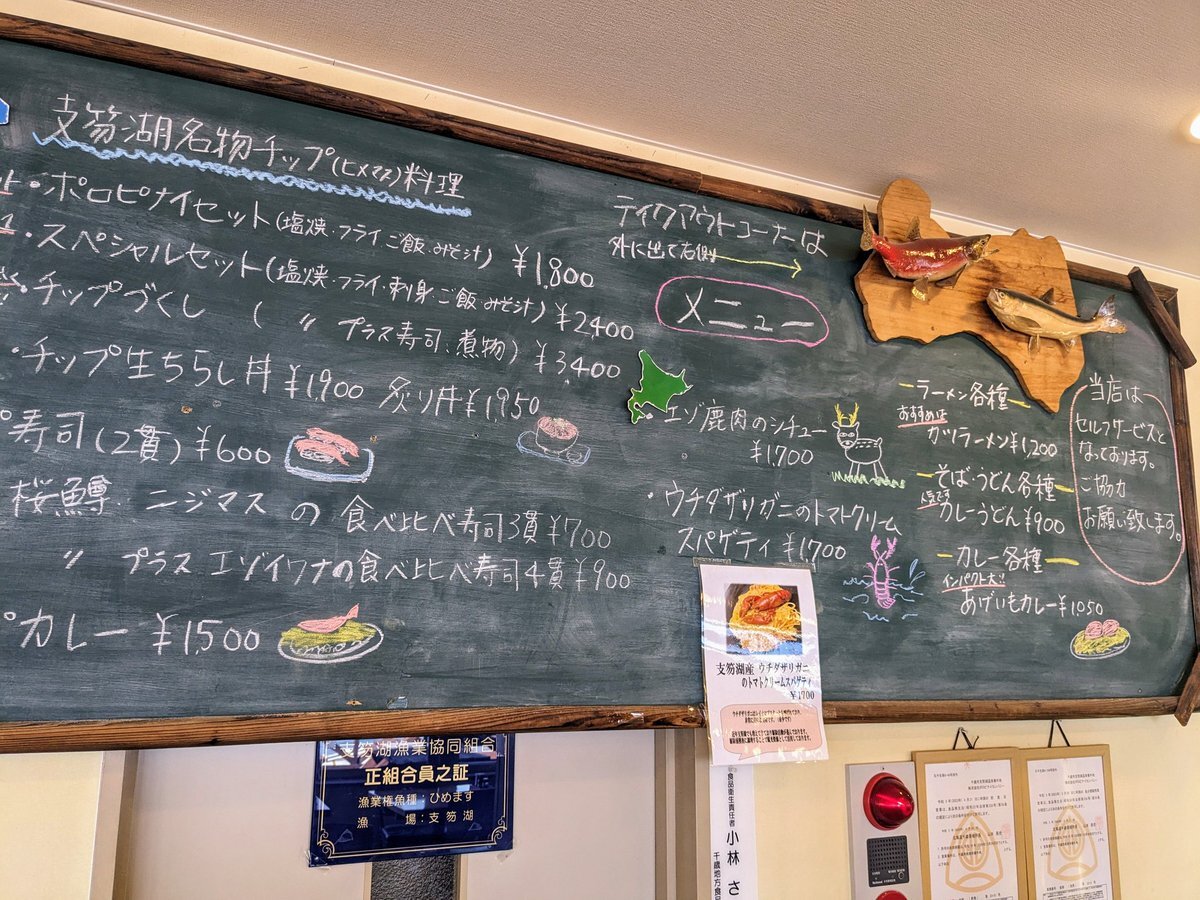 支笏湖名物チップ(ヒメマス)料理
・ポロピナイセット(塩焼・フライご飯・みそ汁) ¥1,800
・スペシャルセット(塩焼・フライ・刺身ご飯・みそ汁) ¥2,400
・チップづくし ( 〃 プラス寿司、煮物) ¥3,400
・チップ生ちらし丼 ¥1,900 炙り丼 ¥1,950
プ寿司(2貫) ¥600
桜鱒・ニジマスの食べ比べ寿司3貫 ¥700
〃 プラスエゾイワナの食べ比べ寿司4貫 ¥900
プカレー ¥1,500
テイクアウトコーナーは
外に出て右側
メニュー
・エゾ鹿肉のシチュー
¥1,700
・ウチダザリガニのトマトクリーム
スパゲティ ¥1,700
ラーメン各種
おすすめは
カツラーメン¥1,200
そば・うどん各種
人気です
カレーうどん¥900
カレー各種
インパクト大!!
あげいもカレー¥1050
当店は
セルフサービスと
なっております。
ご協力
お願い致します。
支笏湖産 ウチダザリガニ
のトマトクリームスパゲティ
¥1700
支笏湖漁業協同組合
正組合員之証
漁業権魚種：ひめます
漁 場：支笏湖
食品衛生責任者 小林 さ
千歳地方食品